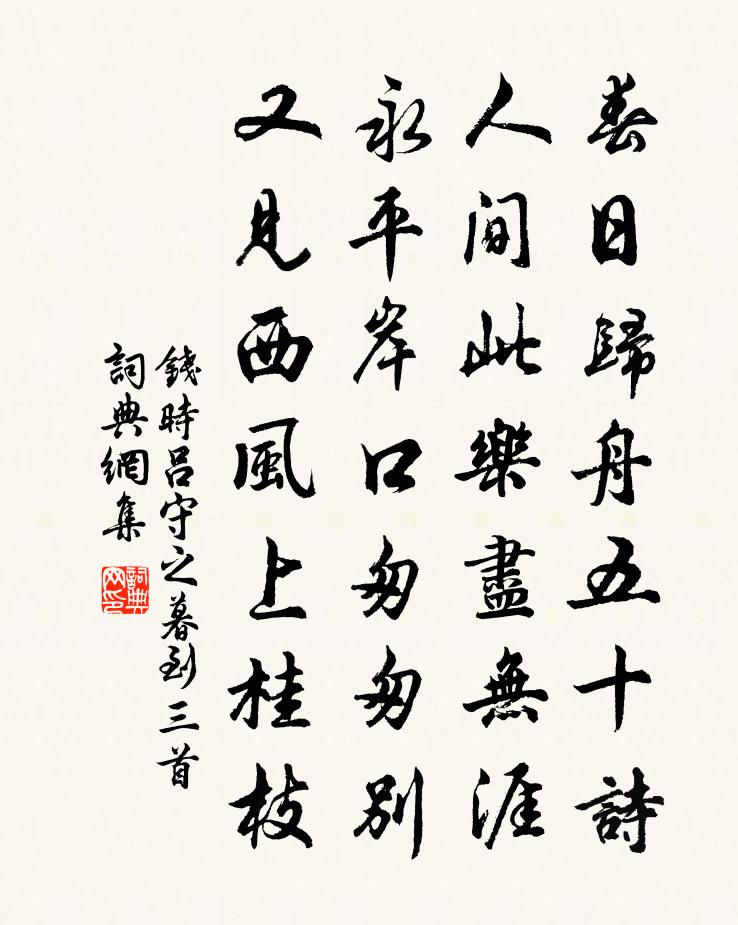 春日歸舟五十詩
人間此樂盡無涯
永平岸口匆匆別
又見西風上桂枝
錢時呂守之暮到三首
詞典網集
詞典網印